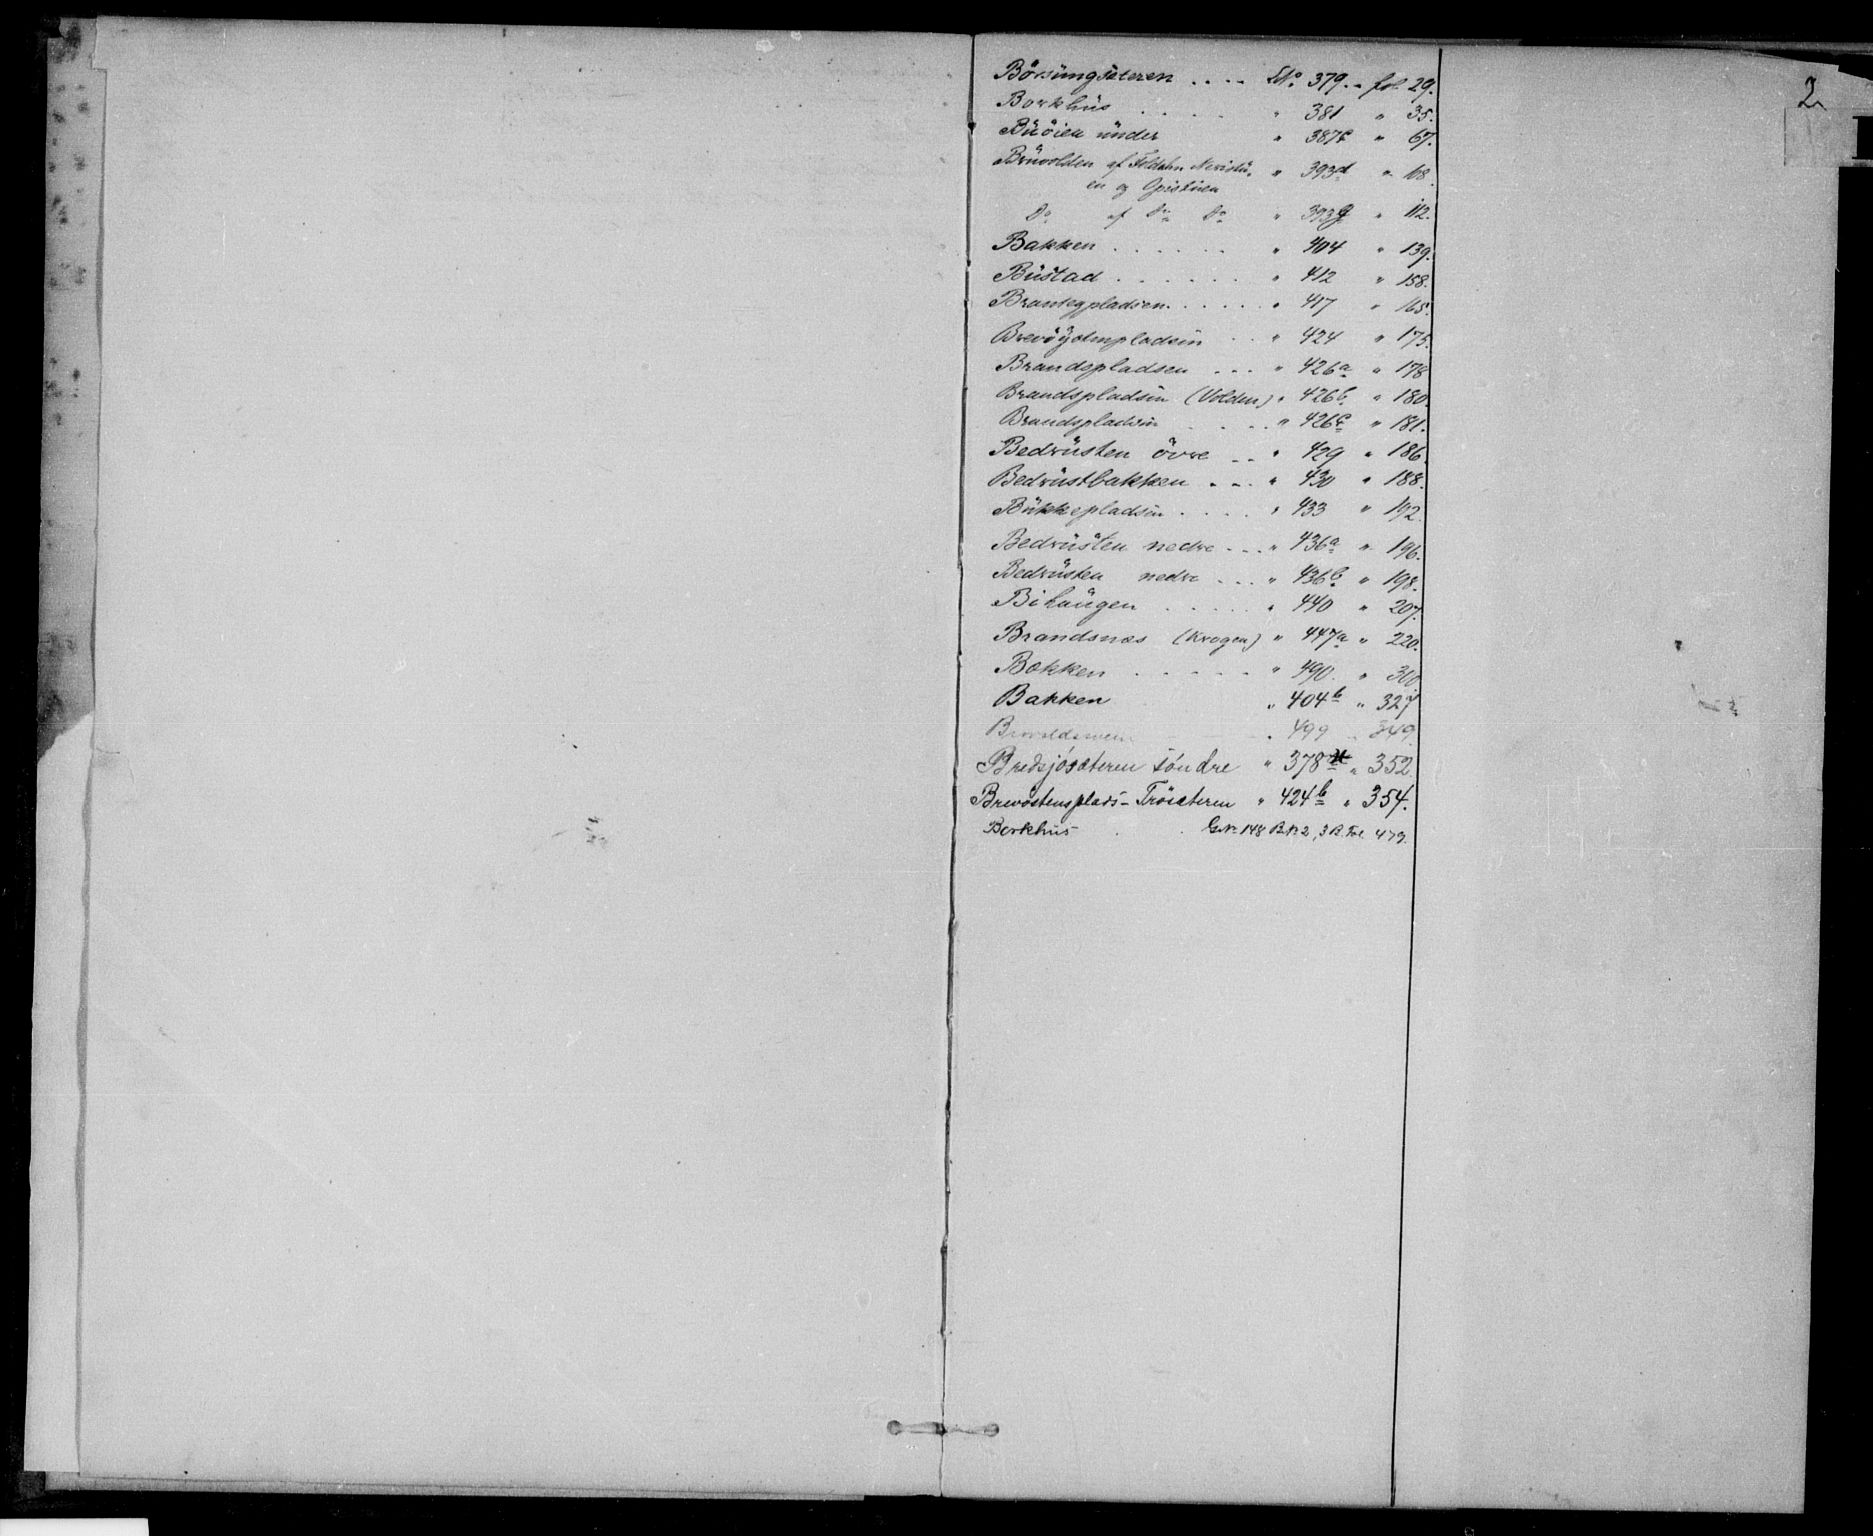 2
Börsüngsæteren .... LNo 379. - fol. 29.
Borkhüs .... " 381 " 35.
Büöien ünder " 387c " 67.
Brüvolden af Foldahn Neristü- " 393d " 108.
en og Opistüen
Do af Do Do " 393g " 112.
Bakken ...... " 404 " 139.
Büstad ...... " 412 " 158.
Brantegpladsen ..... " 417 " 165.
" 424 " 175.
Brandspladsen ... " 426a " 178
Brandspladsen (Volden) " 426b " 180.
Brandspladsen .... " 426c " 181.
Bedrüsten övre .. " 429 " 186.
Bedrüstbakken ... " 430 " 188.
Bükkepladsen .... " 433 " 192.
Bedrüsten nedre ... " 436a " 196.
Bedrüsten nedre ... " 436b " 198.
Bihaügen ..... " 440 " 207.
Brandsnæs (Krogen) " 447a " 220.
Bakken ..... " 490. " 310
Bakken " 404b " 327
" 499 " 349.
Bredsjösæteren söndre " 378 " 352.
Brevöstensplads - Trösæteren " 424b " 354.
Borkhüs . . G.No 148 B.No 2, 3 B. Fol. 479.